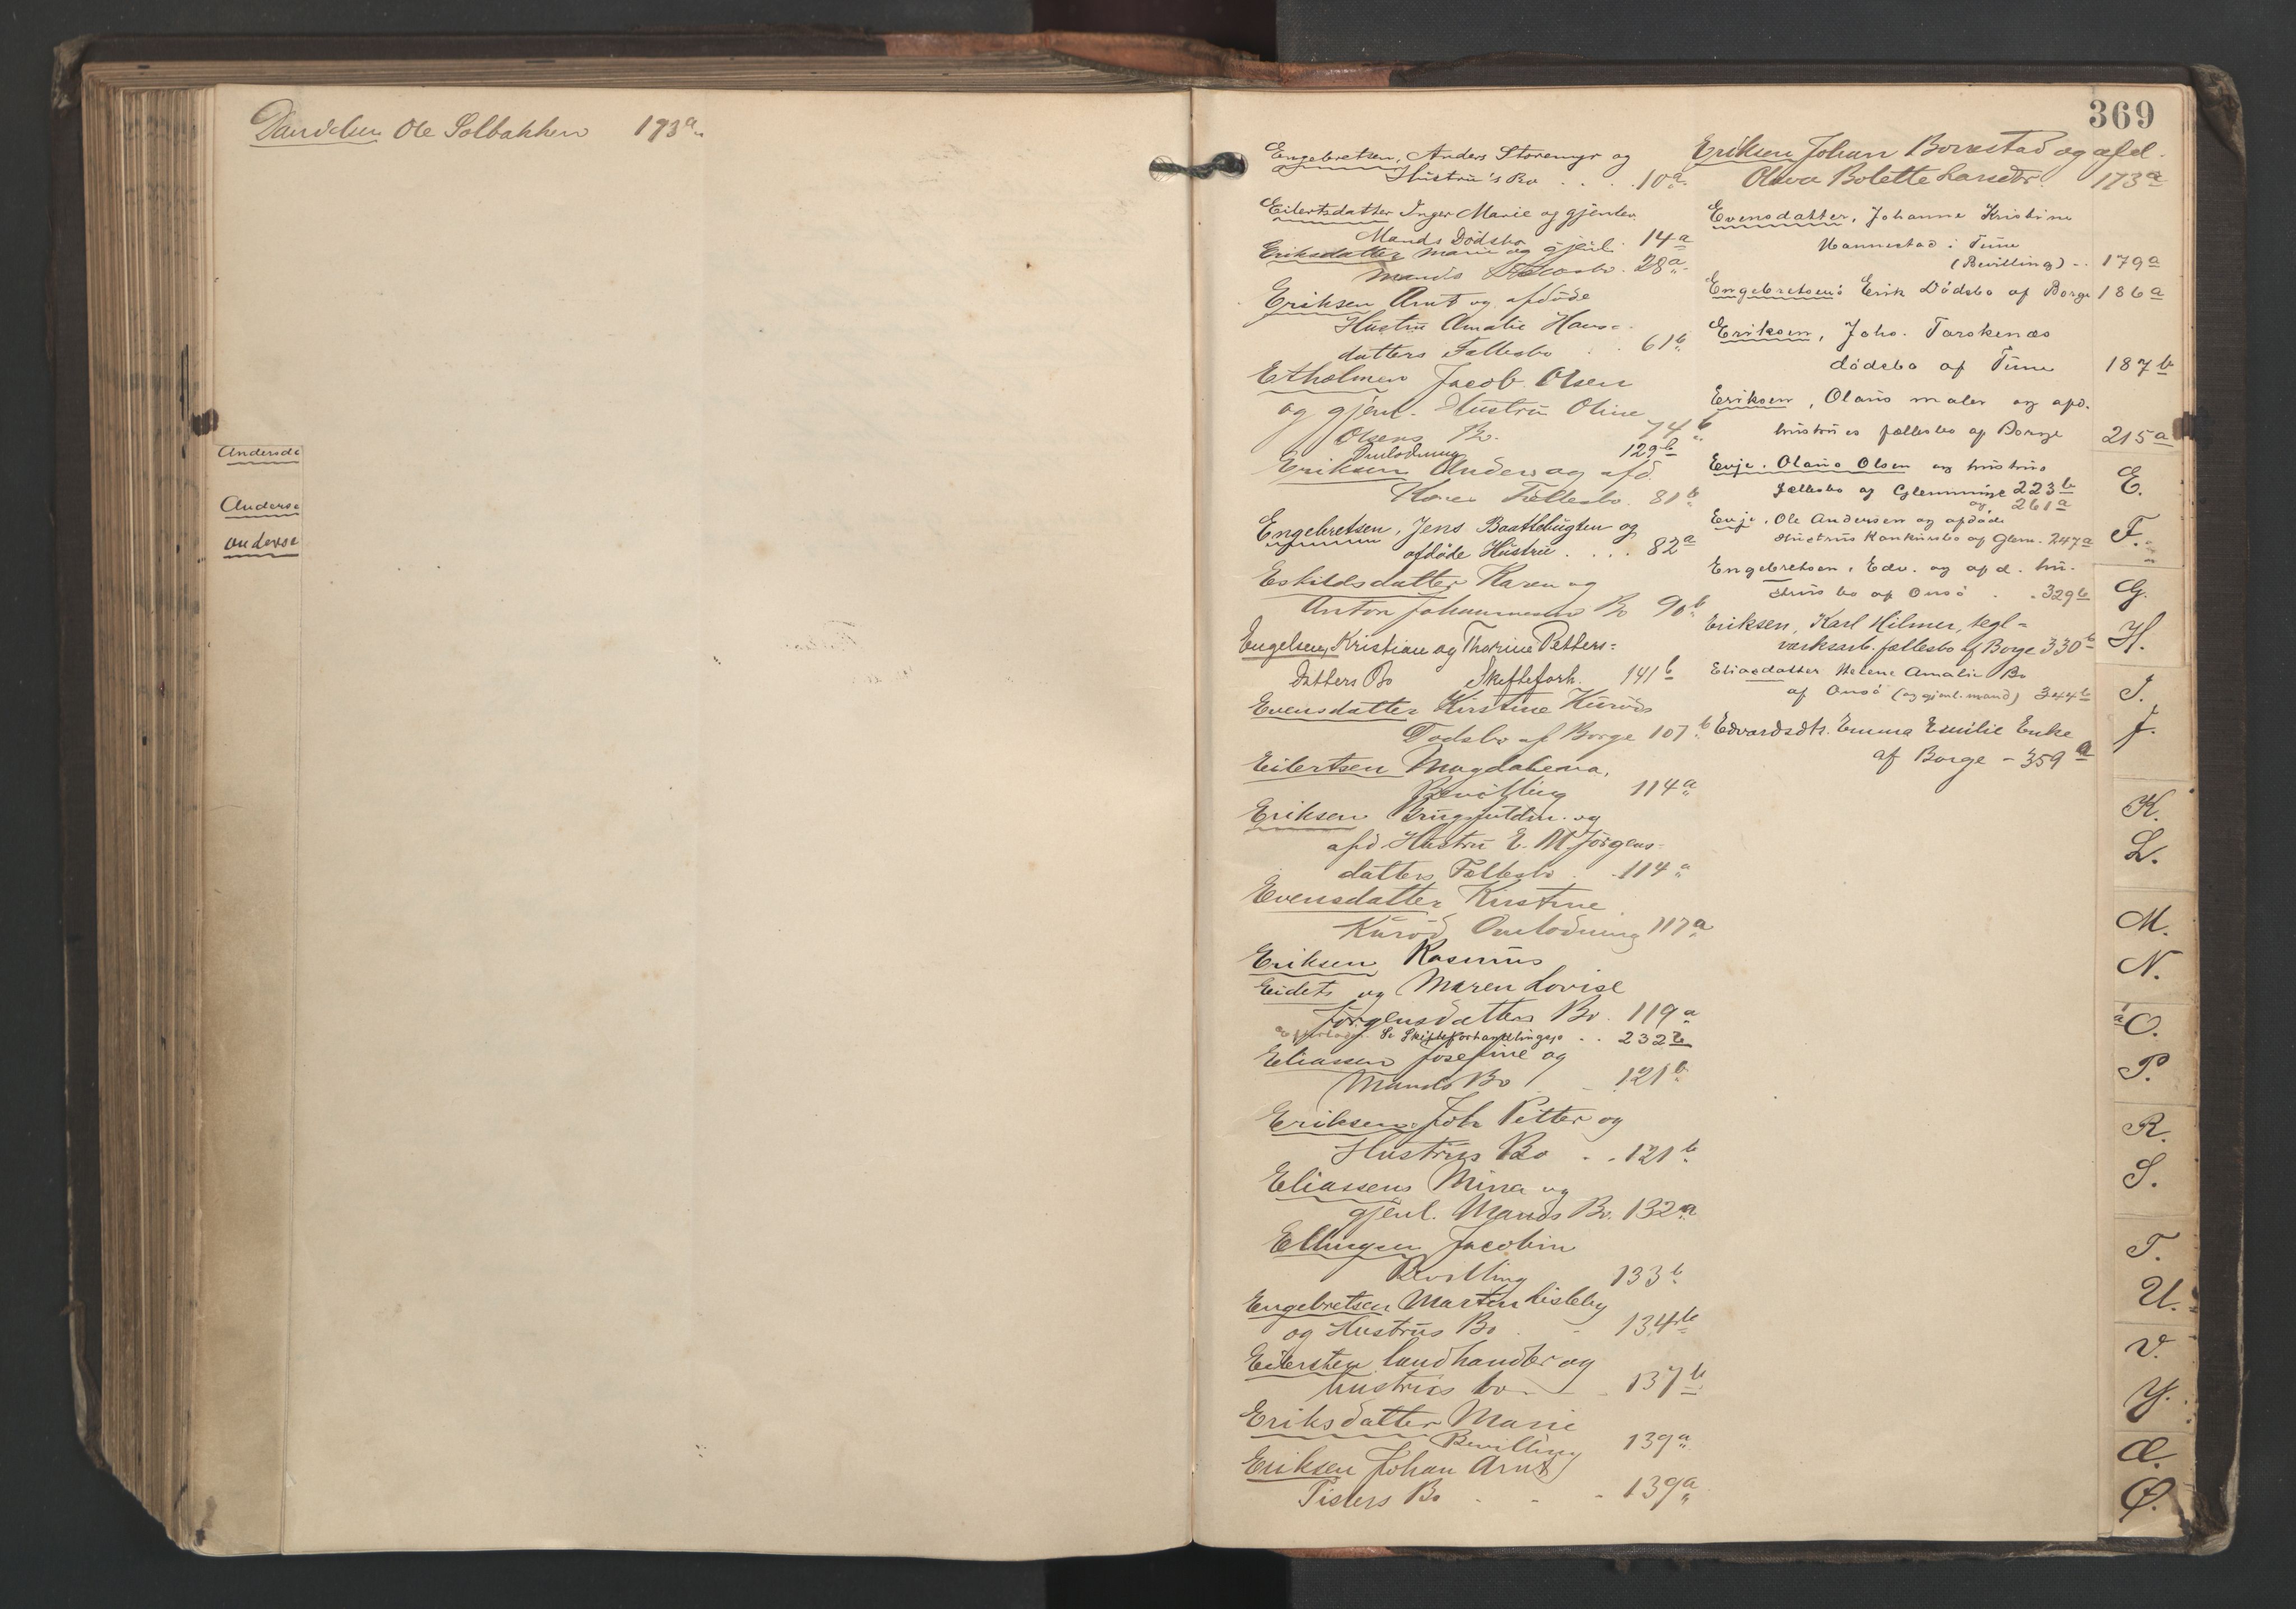 Danielsen Ole Solbakken 173a
Andersda
Anderse
anderse
369
Engebretsen, Anders Storemyr og
Hustru's Bo . . . 10a
Eilertsdatter Inger Marie og gjenlev.
Mands Dödsbo . 14a
Eriksdatter Marie og gjenl.
Mands . 28a
Eriksen Arnt og afdöde
Hustru Amalie Hans-
datters Fællesbo . . 61b
Etholmen Jacob Olsen
og gjenl. Hustru Oline
Olsens Bo. 74b
Omlodning 129b
Eriksen Anders og afd.
Karen Fællesbo. 81b
Engebretsen, Jens Baatlebugten og
afdöde Hustru . . . . 82a
Eskildsdatter Karen og
Anton Johannessens Bo 90b
Engelsen, Kristian og Thorine Petters=
datters Bo Skifteforh. 141b
Evensdatter Kirstine Kuröds
Dödsbo af Borge 107b
Eilertsen Magdalena,
Bevilling 114a
Eriksen og
afd. Hustru E. M. Jörgens-
datters Fællesbo . . 114a
Evensdatter Kirstine
Kuröd Omlodning 117a
Eriksen Rasmus
Eidet og Maren Lovise
Jörgensdatters Bo. 119a
Se Skifteforhandlingspr . . 232b
Eliassen Josefine og
Mands Bo . - 121b
Eriksen Joh Petter og
Hustrus Bo . . 121b
Eliassens Mina og
gjenl. Mands Bo. 132a
Ellingsen Jacobine
Bevilling 133b
Engebretsen Martin Lisleby
og Hustrus Bo . - 134b
Eilertsen landhandler og
hustrus bo - - - 137b
Eriksdatter Marie
Bevilling 139a
Eriksen Johan Arnt
Tislers Bo - - - 139a
Eriksen Johan Borrestad og afd.
Olava Bolette Larsdtr. 173a
Evensdatter, Johanne Kristine
Hannestad i Tune
(Bevilling) - . 179a
Engebretsens Erik Dödsbo af Borge 186a
Eriksen, Johs. Torskenæs
dödsbo af Tune 187b
Eriksen, Olaus maler og afd.
hustrus fællesbo af Borge 215a
Evje, Olaus Olsen og hustrus
fællesbo af Glemminge 223b
og 261a
Evje, Ole Andersen og afdöde
Hustrus Konkursbo af Glem. 247a
Engebretsen, Edv. og afd. hu-
strus bo af Onsö . . 329b
Eriksen, Karl Hilmer, tegl=
værksarb. fællesbo af Borge 330b
Eliasdatter Helene Amalie Bo
af Onsö (og gjenl. mand) 344b
Edvardsdtr. Emma Emilie Enke
af Borge - 359a
E.
F.
G.
H.
I.
J.
K.
L.
M.
N.
O.
P.
R.
S.
T.
U.
V.
Y.
Æ.
Ø.